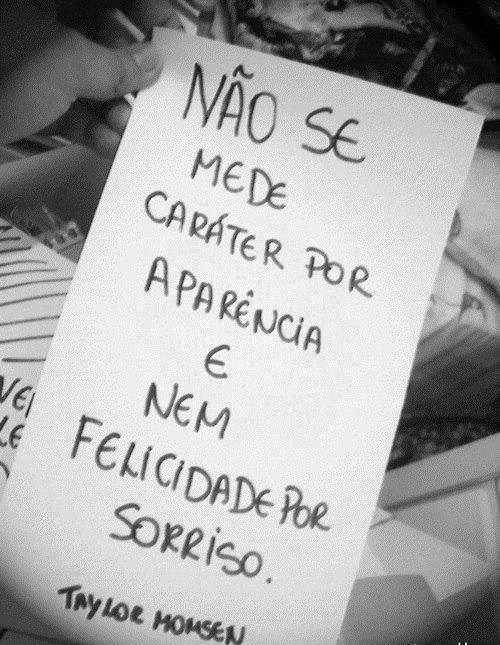 NÃO SE
MEDE
CARÁTER POR
APARÊNCIA
E
NEM
FELICIDADE POR
SORRISO.
TAYLOR MOMSEN